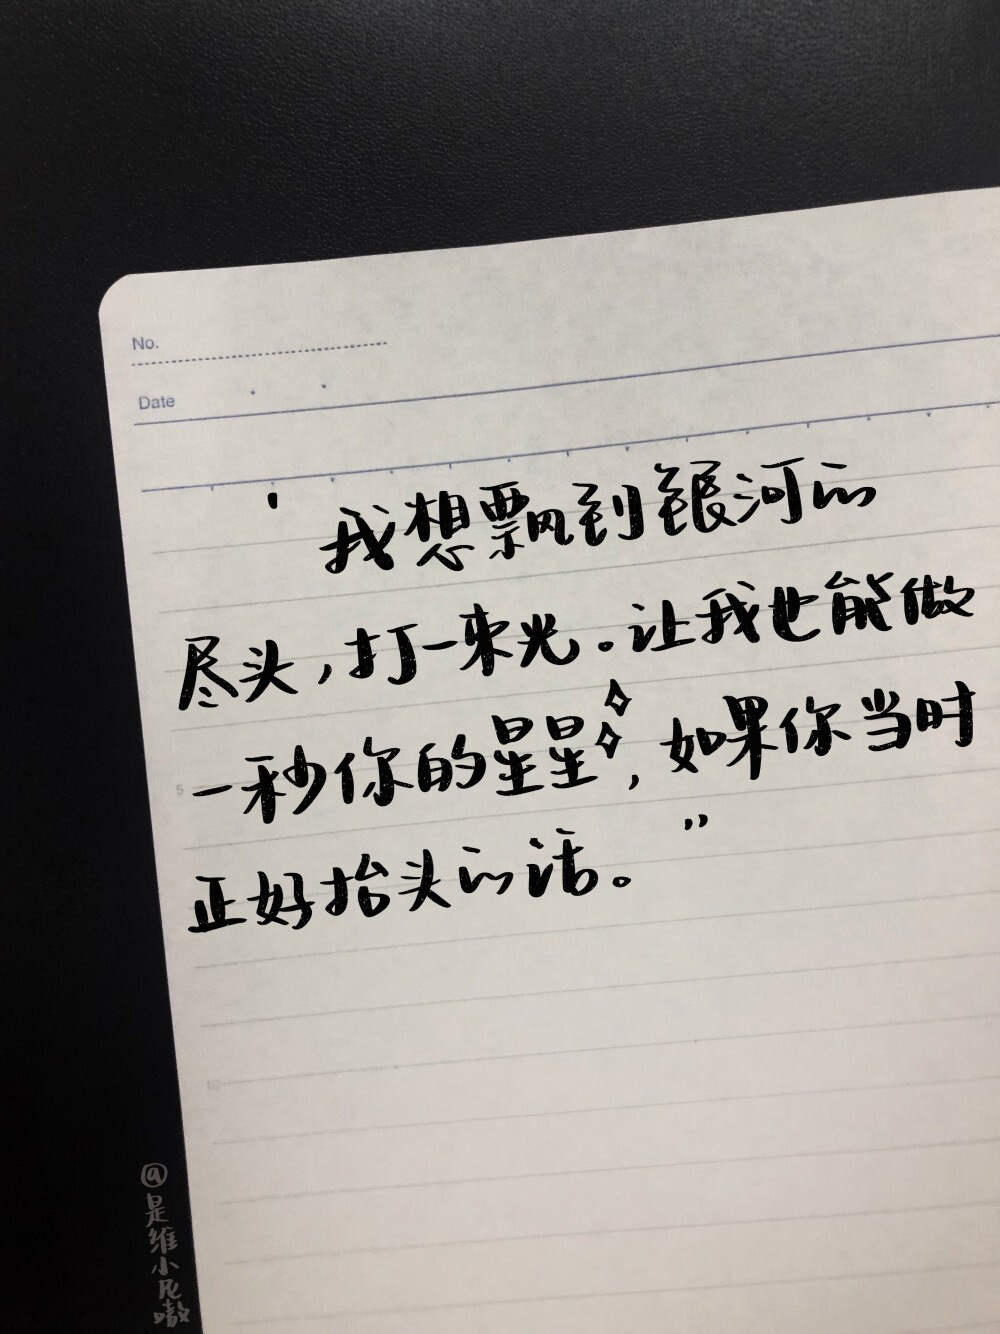 No.
Date
' 我想飘到银河的
尽头,打一束光。让我也能做
一秒你的星星✧✧,如果你当时
正好抬头的话。”
5
10
@是维小尼嗷